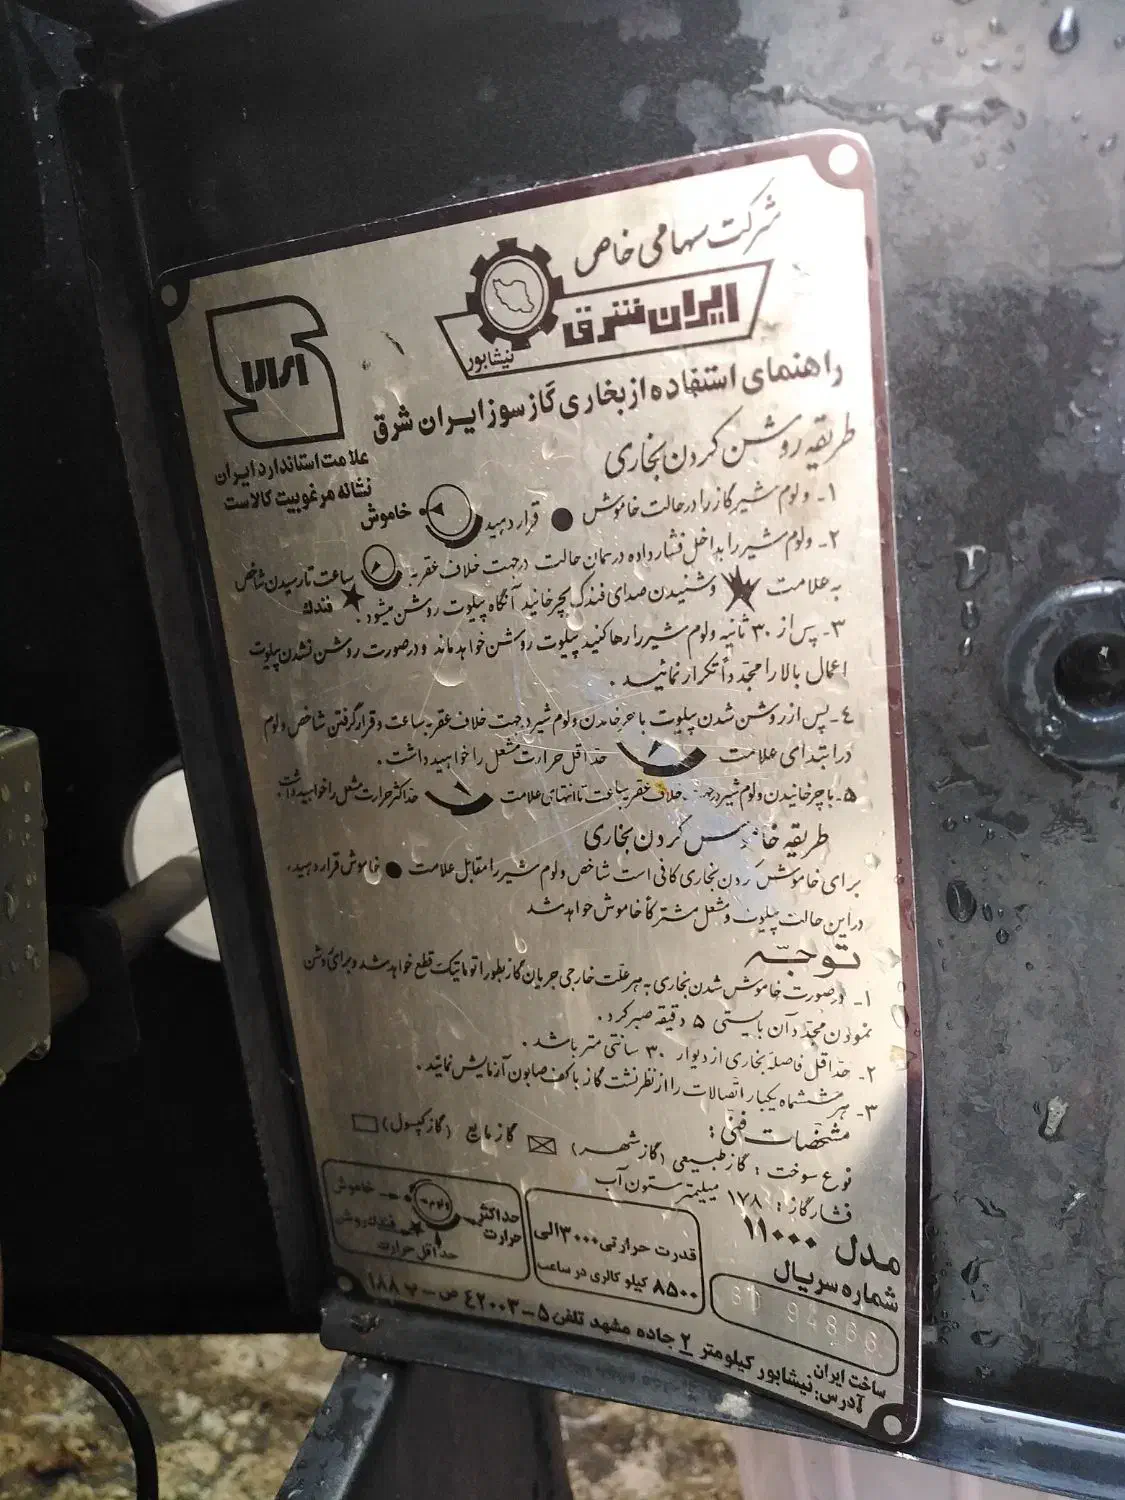 شرکت سهامی خاص
ایران شرق
نیشابور
علامت استاندارد ایران
نشانه مرغوبیت کالاست
راهنمای استفاده از بخاری گاز سوز ایران شرق
طریقه روشن کردن بخاری
۱- ولوم شیر گاز را در حالت خاموش ● قرار دهید خاموش
۲- ولوم شیر را بداخل فشار داده در همان حالت در جهت خلاف عقربه ساعت تا رسیدن شاخص
به علامت و شنیدن صدای فندک بچرخانید آنگاه پیلوت روشن میشود. ★ فندك
۳- پس از ۳۰ ثانیه ولوم شیر را رها کنید پیلوت روشن خواهد ماند و در صورت روشن نشدن پیلوت
اعمال بالا را مجدداً تکرار نمائید.
٤- پس از روشن شدن پیلوت با چرخاندن ولوم شیر در جهت خلاف عقربه ساعت و قرار گرفتن شاخص ولوم
در ابتدای علامت حداقل حرارت مشعل را خواهید داشت.
۵- با چرخانیدن ولوم شیر در جهت خلاف عقربه ساعت تا انتهای علامت حداکثر حرارت مشعل را خواهید داشت.
طریقه خاموش کردن بخاری
برای خاموش کردن بخاری کافی است شاخص ولوم شیر را مقابل علامت ● خاموش قرار دهید.
در این حالت پیلوت و مشعل مشترکاً خاموش خواهد شد
توجّه
۱- در صورت خاموش شدن بخاری به هر علت خارجی جریان گاز بطور اتوماتیک قطع خواهد شد و برای روشن
نمودن مجدد آن بایستی ۵ دقیقه صبر کرد.
۲- حداقل فاصله بخاری از دیوار ۳۰ سانتی متر باشد.
۳- هر ششماه یکبار اتصالات را از نظر نشت گاز با کف صابون آزمایش نمائید.
مشخصات فنی:
نوع سوخت: گاز طبیعی (گاز شهر) ☒ گاز مایع (گاز کپسول) ☐
فشار گاز: ۱۷۸ میلیمتر ستون آب
مدل ۱۱۰۰۰
شماره سریال
94866
قدرت حرارتی ۳۰۰۰ الی
۸۵۰۰ کیلو کالری در ساعت
حداکثر حرارت
ولوم
خاموش
فندك روشن
حداقل حرارت
ساخت ایران
آدرس: نیشابور کیلومتر ۲ جاده مشهد تلفن ۵-٤۲۰۰۳ ص-پ ۱۸۸